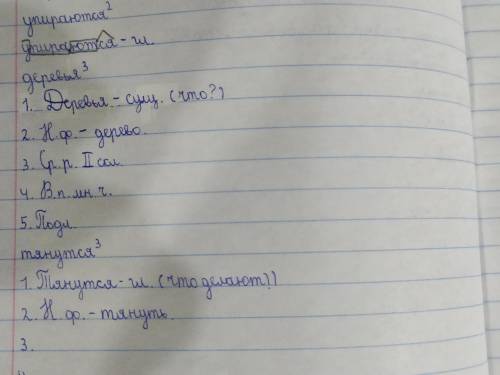 упираются²
упираются - гл.
деревья³
1. Деревья - сущ. (что?)
2. Н.ф. - дерево.
3. Ср. р. II скл.
4. В.п. мн. ч.
5. Подл.
тянутся³
1. Тянутся - гл. (что делают?)
2. Н.ф. - тянуть.
3.